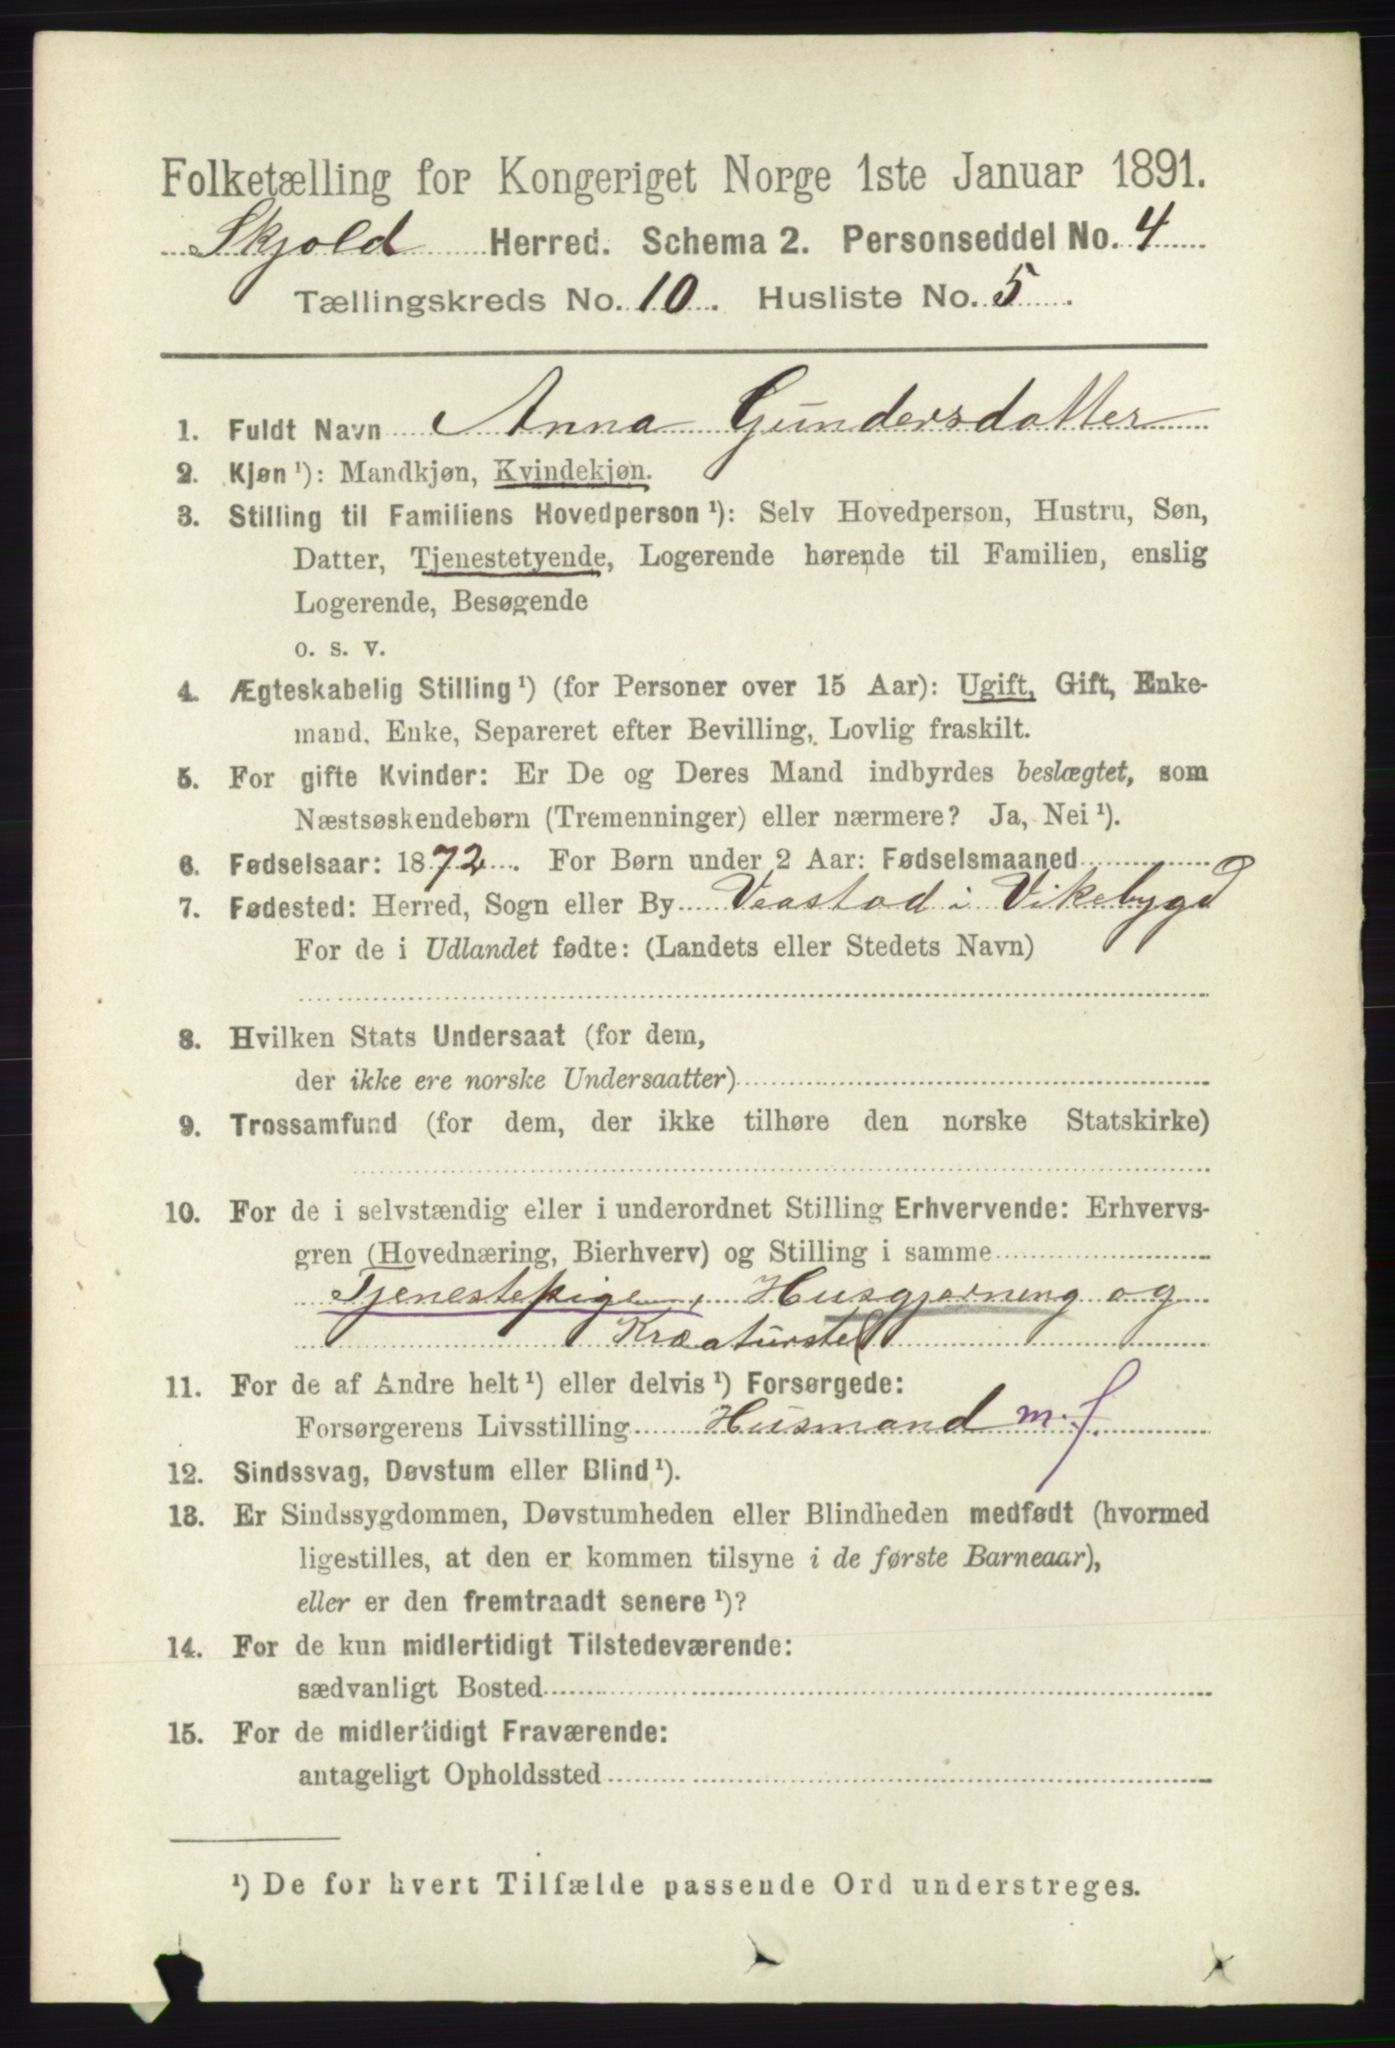 Folketælling for Kongeriget Norge 1ste Januar 1891.
Skjold Herred. Schema 2. Personseddel No. 4
Tællingskreds No. 10. Husliste No. 5.
1. Fuldt Navn Anna Gundersdatter
2. Kjøn ¹): Mandkjøn, Kvindekjøn.
3. Stilling til Familiens Hovedperson ¹): Selv Hovedperson, Hustru, Søn,
Datter, Tjenestetyende, Logerende hørende til Familien, enslig
Logerende, Besøgende
o. s. v.
4. Ægteskabelig Stilling ¹) (for Personer over 15 Aar): Ugift, Gift, Enke-
mand, Enke, Separeret efter Bevilling, Lovlig fraskilt.
5. For gifte Kvinder: Er De og Deres Mand indbyrdes beslægtet, som
Næstsøskendebørn (Tremenninger) eller nærmere? Ja, Nei ¹).
6. Fødselsaar: 1872. For Børn under 2 Aar: Fødselsmaaned
7. Fødested: Herred, Sogn eller By Veastad i Vikebygd
For de i Udlandet fødte: (Landets eller Stedets Navn)
8. Hvilken Stats Undersaat (for dem,
der ikke ere norske Undersaatter)
9. Trossamfund (for dem, der ikke tilhøre den norske Statskirke)
10. For de i selvstændig eller i underordnet Stilling Erhvervende: Erhvervs-
gren (Hovednæring, Bierhverv) og Stilling i samme
Tjenestepige, Husgjerning og
Kreaturstel
11. For de af Andre helt ¹) eller delvis ¹) Forsørgede:
Forsørgerens Livsstilling Husmand m. f.
12. Sindssvag, Døvstum eller Blind ¹).
13. Er Sindssygdommen, Døvstumheden eller Blindheden medfødt (hvormed
ligestilles, at den er kommen tilsyne i de første Barneaar),
eller er den fremtraadt senere ¹)?
14. For de kun midlertidigt Tilstedeværende:
sædvanligt Bosted
15. For de midlertidigt Fraværende:
antageligt Opholdssted
¹) De for hvert Tilfælde passende Ord understreges.